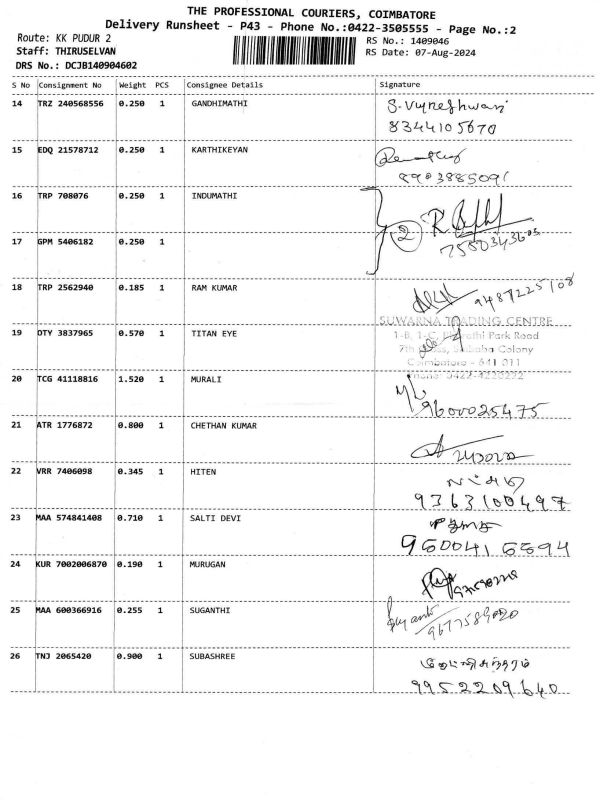 THE PROFESSIONAL COURIERS, COIMBATORE
Delivery Runsheet - P43 - Phone No.:0422-3505555 - Page No.:2
Route: KK PUDUR 2 RS No.: 1409046
Staff: THIRUSELVAN RS Date: 07-Aug-2024
DRS No.: DCJB140904602
S No Consignment No Weight PCS Consignee Details Signature
14 TRZ 240568556 0.250 1 GANDHIMATHI
8344105670
15 EDQ 21578712 0.250 1 KARTHIKEYAN
8903885091
16 TRP 708076 0.250 1 INDUMATHI
2
17 GPM 5406182 0.250 1
18 TRP 2562940 0.185 1 RAM KUMAR
9487225108
SUWARNA TRADING CENTRE
19 OTY 3837965 0.570 1 TITAN EYE
1-B, 1-C, Park Road
7th Colony
Coimbatore - 641 011
Phone: 0422-4220222
20 TCG 41118816 1.520 1 MURALI
9600025475
21 ATR 1776872 0.800 1 CHETHAN KUMAR
22 VRR 7406098 0.345 1 HITEN
9363100497
23 MAA 574841408 0.710 1 SALTI DEVI
24 KUR 7002006870 0.190 1 MURUGAN
25 MAA 600366916 0.255 1 SUGANTHI
26 TNJ 2065420 0.900 1 SUBASHREE
9952209640